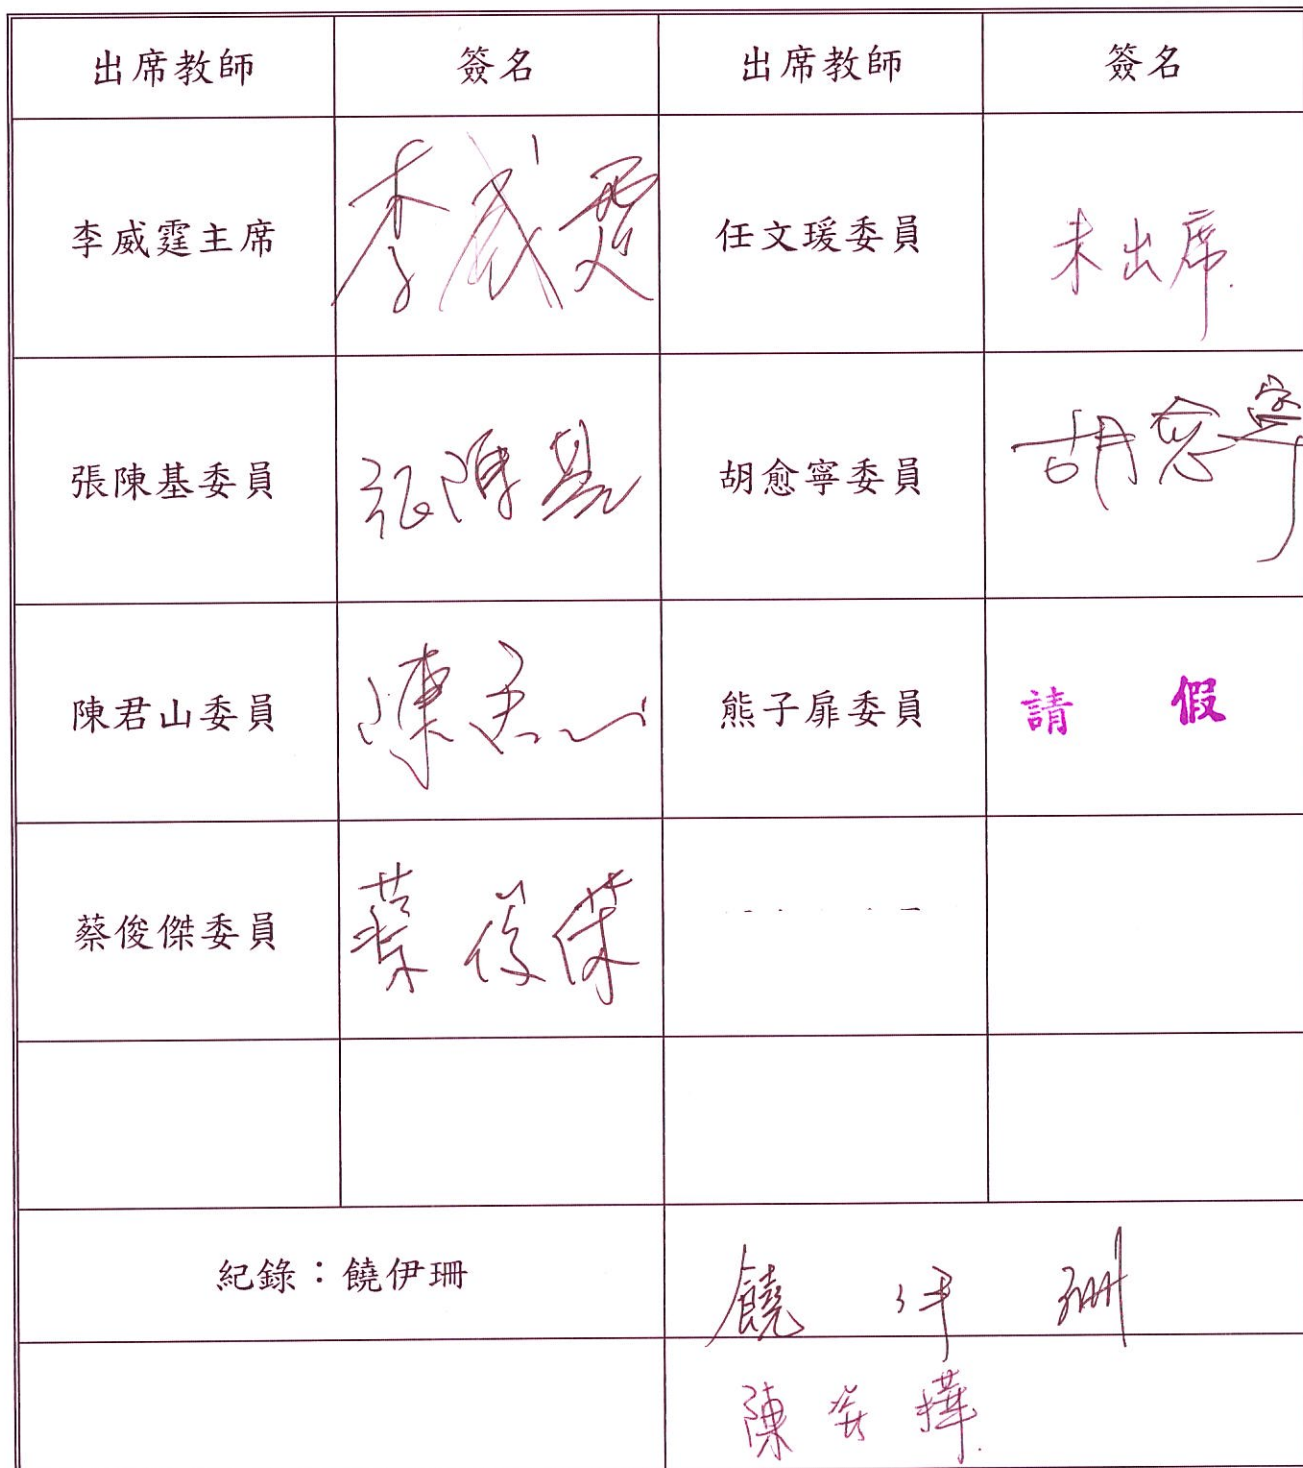 出席教師 簽名 出席教師 簽名
李威霆主席 李威霆 任文瑗委員 未出席.
張陳基委員 張陳基 胡愈寧委員 胡愈寧
陳君山委員 陳君山 熊子扉委員 請 假
蔡俊傑委員 蔡俊傑
紀錄：饒伊珊 饒伊珊
陳